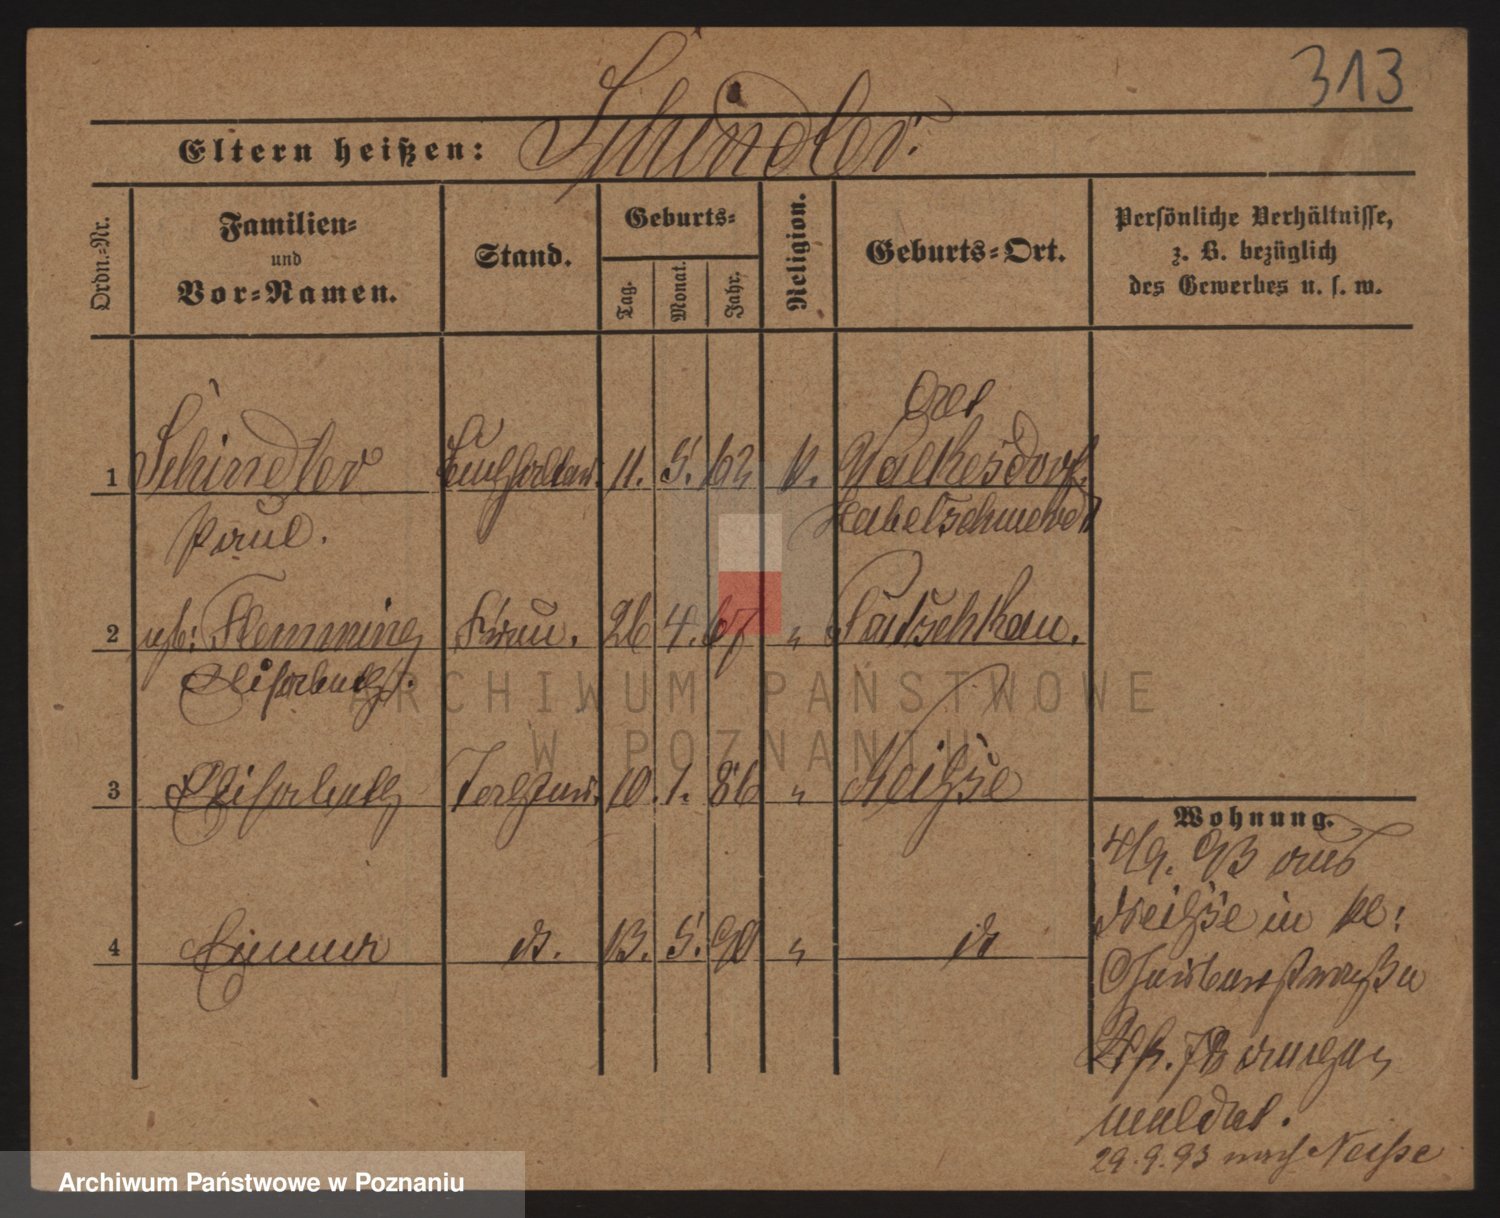 313
Eltern heißen: Schindler.
Ordn.-Nr.
Familien-
und
Vor-Namen.
Stand.
Geburts-
Tag.
Monat.
Jahr.
Religion.
Geburts-Ort.
Persönliche Verhältnisse,
z. B. bezüglich
des Gewerbes u. s. w.
1 Schindler 11. 5. 62 k.
Paul. Habelschwerdt
2 geb: Flemming Frau. 26 4. 67 " Patschkau.
Elisabeth.
3 Elisabeth 10. 1. 86 " Neiße
4 Emma d. 13. 5. 90 " d
Wohnung.
4/9. 93 aus
Neiße in
angem
meldet.
29.9.93 nach Neisse
ARCHIWUM PAŃSTWOWE
W POZNANIU
Archiwum Państwowe w Poznaniu